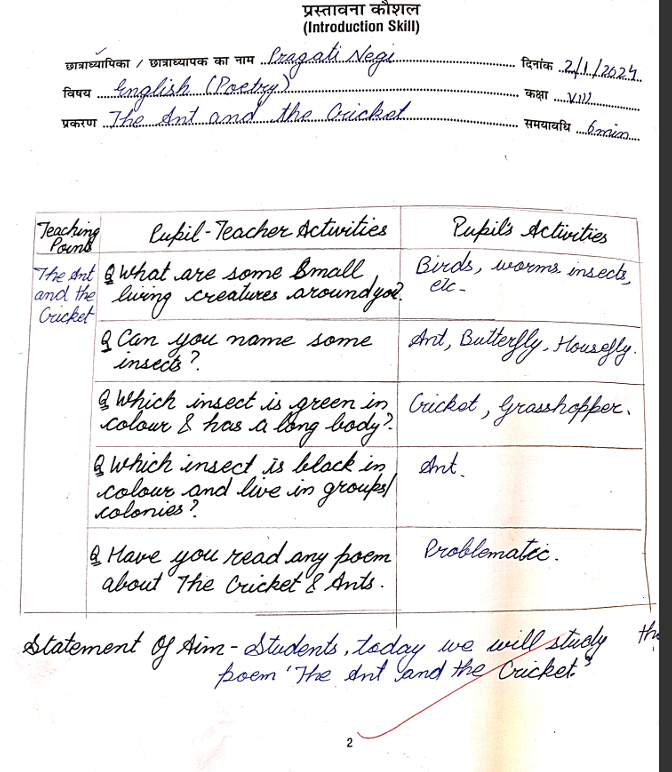 प्रस्तावना कौशल
(Introduction Skill)
छात्राध्यापिका / छात्राध्यापक का नाम Pragati Negi दिनांक 2/1/2024
विषय English (Poetry) कक्षा VIII
प्रकरण The Ant and the Cricket समयावधि 6min
Teaching Points Pupil-Teacher Activities Pupil's Activities
The Ant and the Cricket
Q What are some small
living creatures around you?
Birds, worms insects,
etc-
Q Can you name some
insects?
Ant, Butterfly, Housefly.
Q Which insect is green in
colour & has a long body?
Cricket, Grasshopper.
Q Which insect is black in
colour and live in groups/
colonies?
Ant.
Q Have you read any poem
about The Cricket & Ants.
Problematic.
Statement Of Aim - Students, today we will study the
poem 'The Ant and the Cricket.'
2